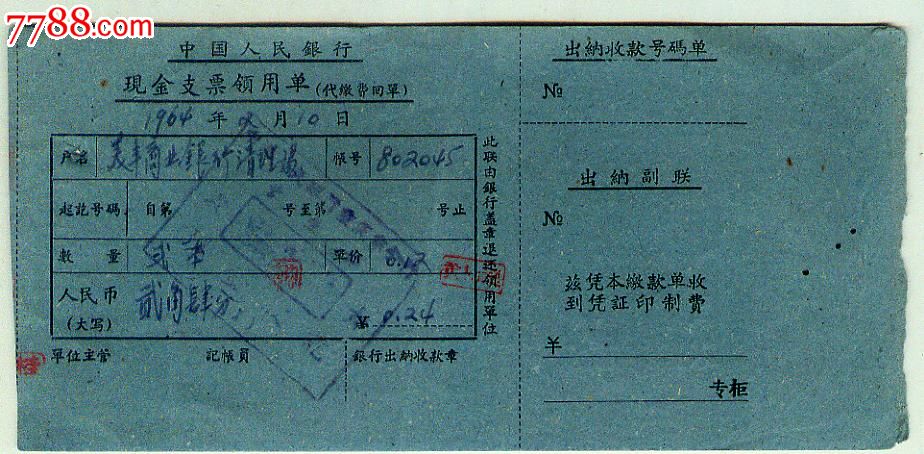 7788.com
中国人民銀行
現金支票领用单(代缴费回單)
1964年 月10日
户名 美丰商业銀行清理處 帐号 802045
起訖号碼 自第 号至第 号止
数量 贰本 單价 0.12
人民币(大写) 贰角肆分 0.24
單位主管 記帳員 銀行出納收款章
此联由銀行盖章退还领用單位
出納收款号碼单
№
出納副联
№
兹凭本繳款单收
到凭証印制費
￥
专柜